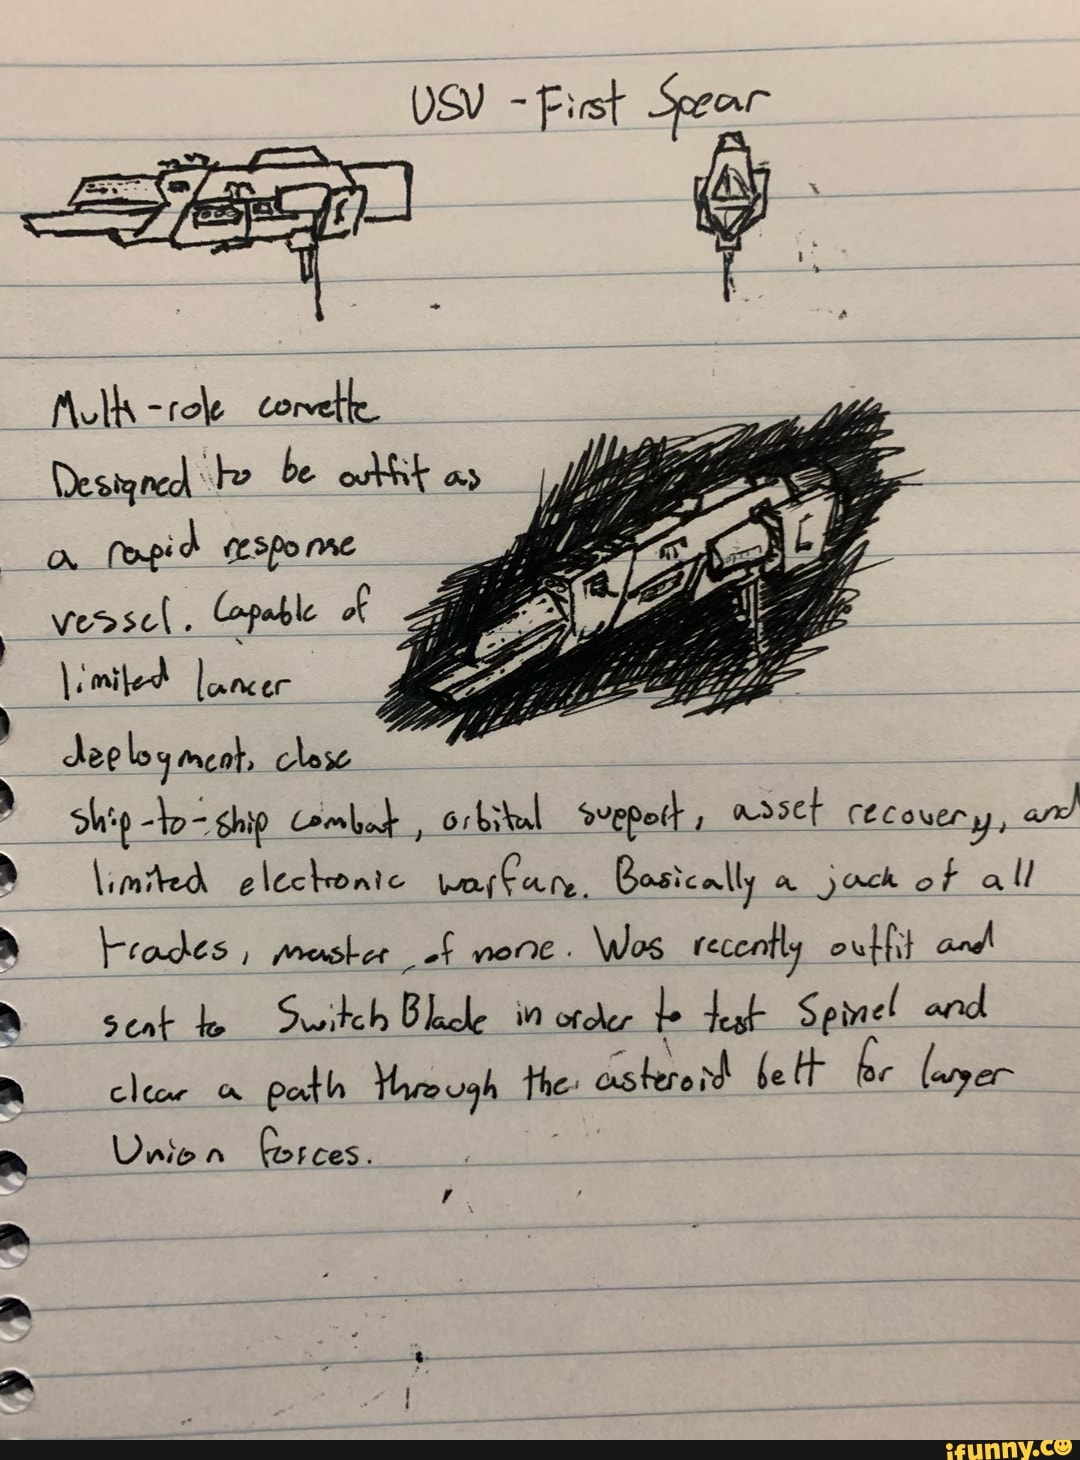 USV - First Spear
Multi-role corvette
Designed to be outfit as
a rapid response
vessel. Capable of
limited lancer
deployment, close
ship-to-ship combat, orbital support, asset recovery, and
limited electronic warfare. Basically a jack of all
trades, master of none. Was recently outfit and
sent to SwitchBlade in order to test Spinel and
clear a path through the asteroid belt for larger
Union forces.
ifunny.co